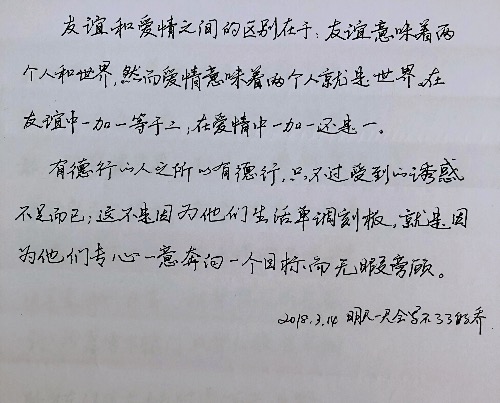 友谊和爱情之间的区别在于：友谊意味着两
个人和世界，然而爱情意味着两个人就是世界。在
友谊中一加一等于二；在爱情中一加一还是一。
有德行的人之所以有德行，只不过受到的诱惑
不足而已；这不是因为他们生活单调刻板，就是因
为他们专心一意奔向一个目标而无暇旁顾。
2018.3.14 明天一定会写不了了的乔